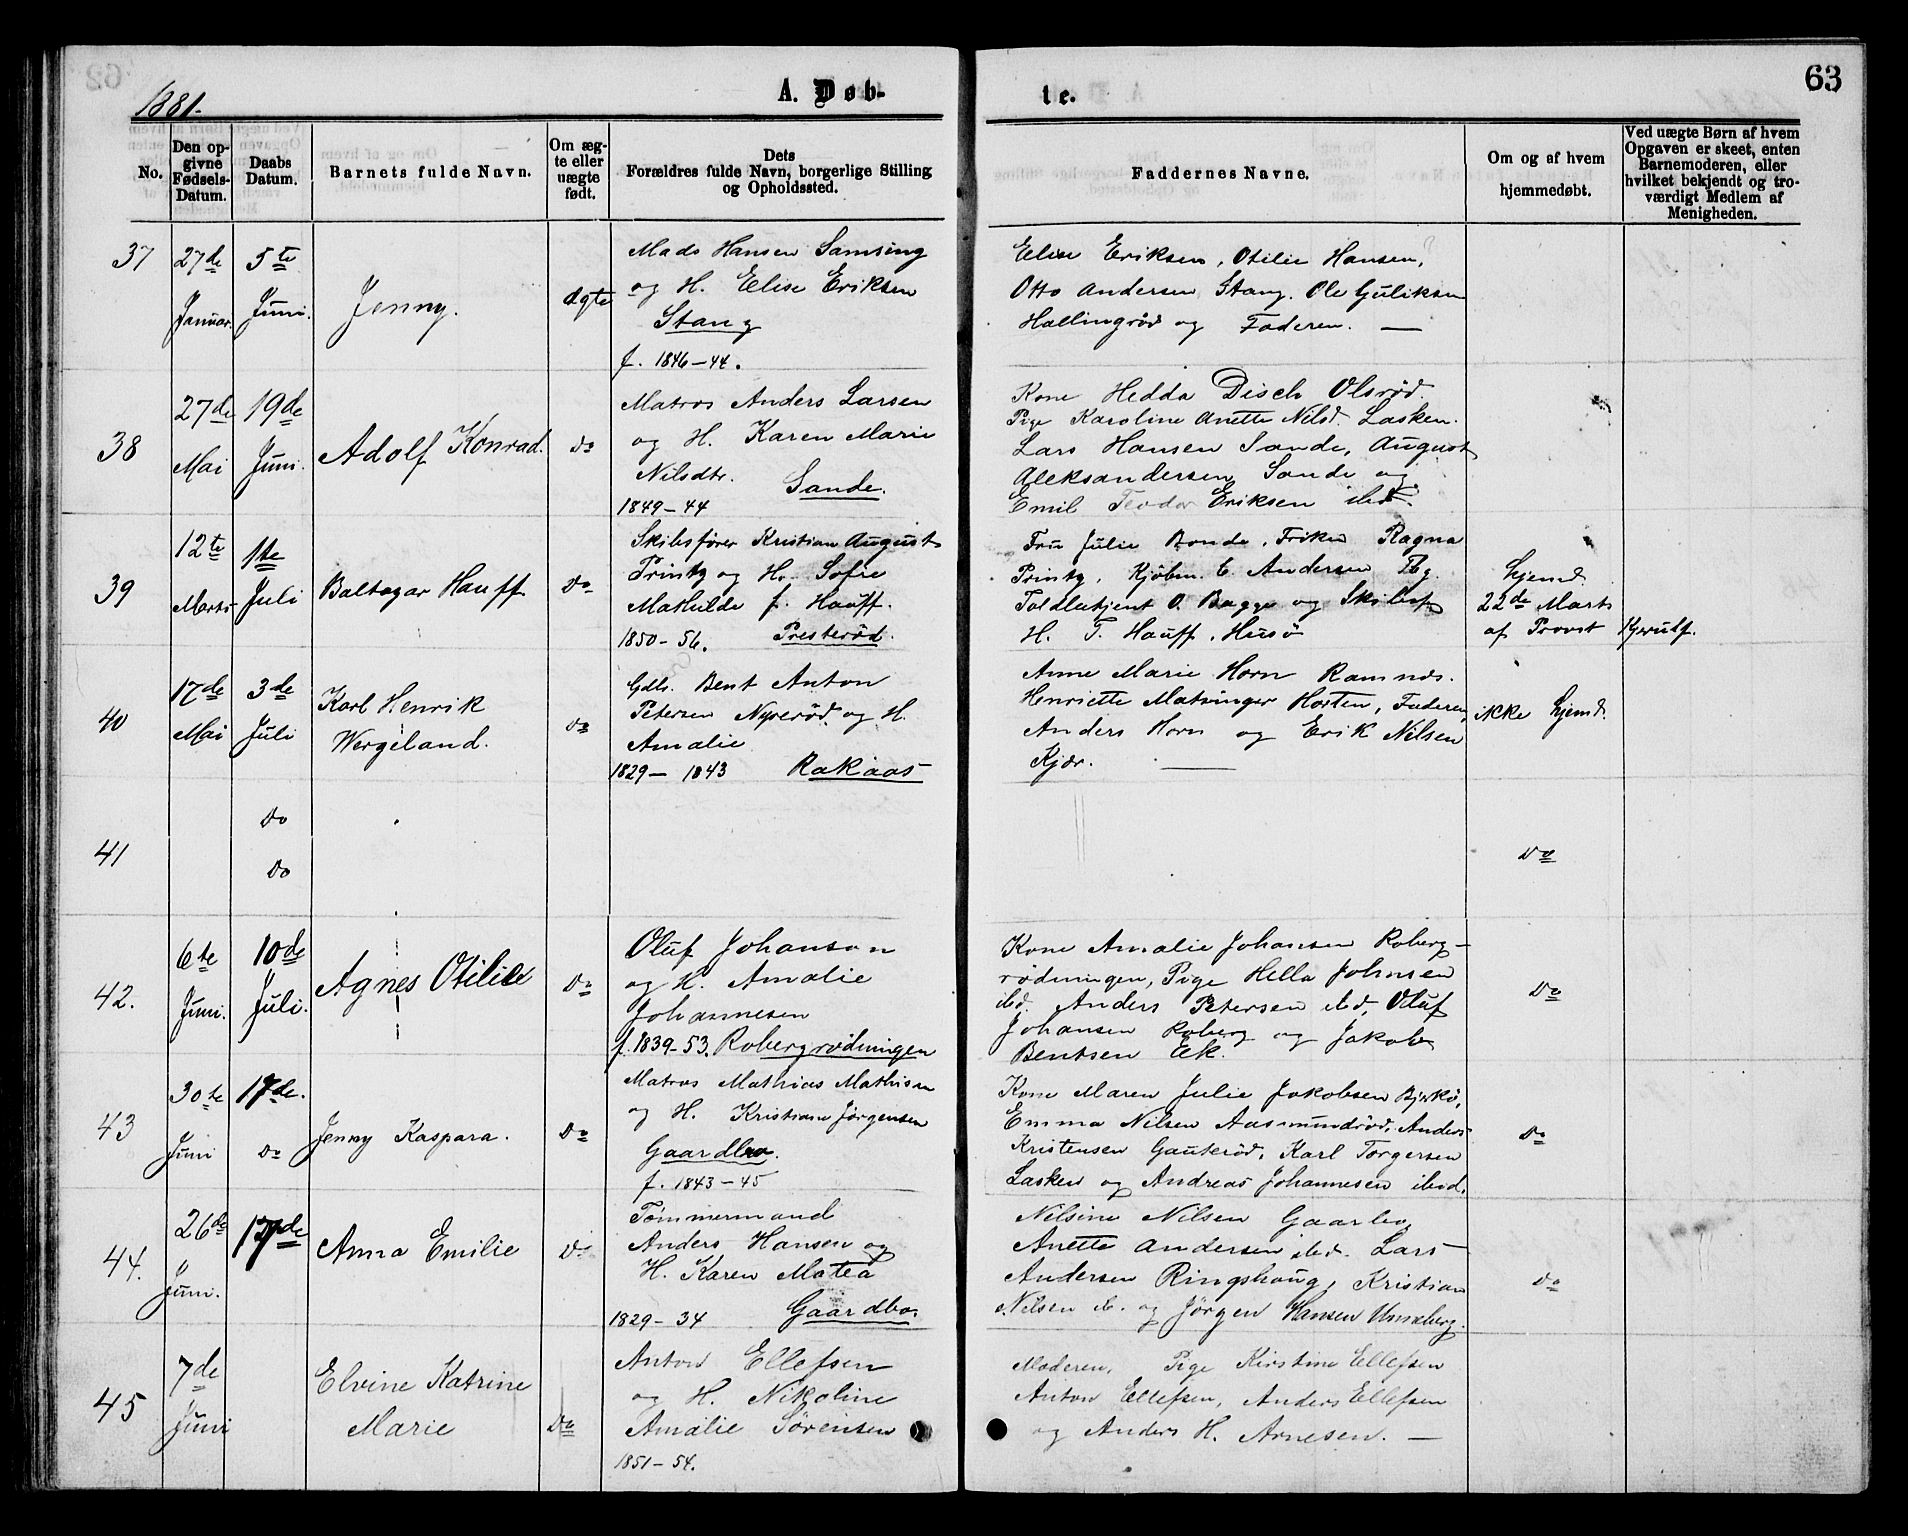 1881.
A. Døb-
te.
63
No.
Den op-
givne
Fødsels-
Datum.
Daabs
Datum.
Barnets fulde Navn.
Om æg-
te eller
uægte
født.
Dets
Forældres fulde Navn, borgerlige Stilling
og Opholdssted.
Faddernes Navne.
Om og af hvem
hjemmedøbt.
Ved uægte Børn af hvem
Opgaven er skeet, enten
Barnemoderen, eller
hvilket bekjendt og tro-
værdigt Medlem af
Menigheden.
37
27de
Januar.
5te
Juni.
Jenny.
ægte
Mads Hansen Samsing
og H. Elise Eriksen
Stang
f. 1846-44.
Elise Eriksen, Otilie Hansen,
Otto Andersen Stang. Ole Guliksen
Hallingrød og Faderen. —
38
27de
Mai
19de
Juni.
Adolf Konrad.
do
Matros Anders Larsen
og H. Karen Marie
Nilsdtr. Sande.
1849-44
Kone Hedda Disch Olsrød.
Pige Karoline Anette Nilsd. Lasken.
Lars Hansen Sande, August
Aleksandersen Sande og
Emil Teodor Eriksen ibd.
39
12te
Marts
1ste
Juli
Baltazar Hauff
Do
Skibsfører Kristian August
Printz og H. Sofie
Mathilde f. Hauff.
1850-56. Presterød.
Fru Julie Bonde, Frøken Ragna
Printz, Kjøbm. C. Andersen Tbg.
Toldbetjent O. Bagge og Skibsf.
H. T. Hauff, Husø
hjemd.
22de Marts
af Provst Kjerulf.
40
17de
Mai
3de
Juli
Karl Henrik
Wergeland.
do
Gdbr. Bent Anton
Petersen Nyrerød og H.
Amalie
1829-1843 Rakaas
Anne Marie Horn Ramnes.
Henriette Matninger Horten, Faderen,
Anders Horn og Erik Nilsen
Kjær. —
ikke hjemd.
41
Do
Do
Do
42.
6te
Juni.
10de
Juli.
Agnes Otilie
Do
Oluf Johanson
og H. Amalie
Johannesen
f. 1839-53. Robergrødningen
Kone Amalie Johansen Roberg-
rødningen, Pige Hella Johnsen
ibd. Anders Petersen ibd, Oluf
Johansen Roberg og Jakob
Bentsen Eek.
Do
43
30te
Juni
17de.
Do
Jenny Kaspara.
Do
Matros Mathias Mathisen
og H. Kristiane Jørgensen
Gaardbo.
f. 1843-45
Kone Maren Julie Jakobsen Bjerkø,
Emma Nilsen Aasmundrød, Anders
Kristensen Gauterød, Karl Torgersen
Lasken og Andreas Johannesen ibid.
Do
44.
26de
Juni.
17de
Anna Emilie
Do
Tømmermand
Anders Hansen og
H. Karen Matea
1829-34 Gaardbo.
Nilsine Nilsen Gaarbo,
Anette Andersen ibd. Lars
Andersen Ringshaug, Kristian
Nilsen ib. og Jørgen Hansen Unneberg.
do
45
7de
Juni
Elvine Katrine
Marie
Do
Anton Ellefsen
og H. Nikoline
Amalie Sørensen
1851-54.
Moderen, Pige Kirstine Ellefsen
Anton Ellefsen, Anders Ellefsen
og Anders H. Arnesen. —